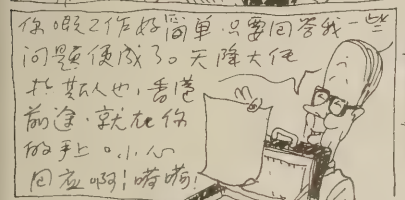 你嘅工作好简单.只要回答我一些
问题便成了。天降大任
于其人也,香港
前途.就在你
的手上。小心
回应啊!嗬嗬!